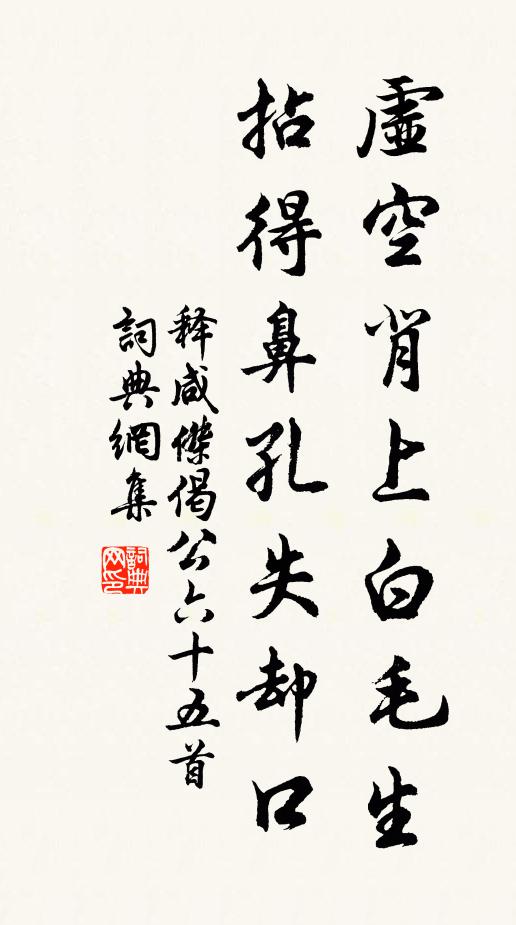 虛空背上白毛生
拈得鼻孔失却口
释咸傑偈公六十五首
詞典網集
詞典網印